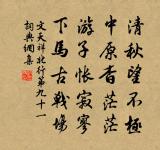 清秋望不極
中原杳茫茫
游子悵寂寥
下馬古戰場
文天祥北行第九十一
詞典網集